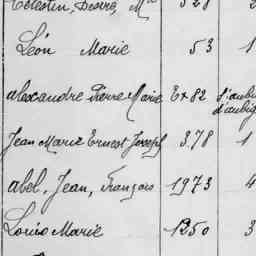 Célestin, Désiré, M
Léon Marie 53 1
alexandre Pierre Marie Ex 82
Jean Marie Ernest Joseph 3.78 1
abel, Jean, François 1973 4
Louis Marie 1250 3